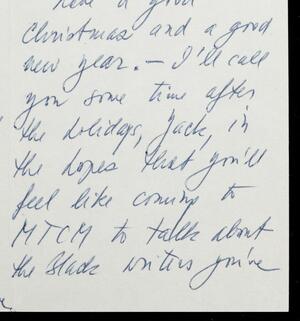 have a good
Christmas and a good
new year. — I'll call
you some time after
the holidays, Jack, in
the hopes that you'll
feel like coming to
MTCM to talk about
the Black writers you've